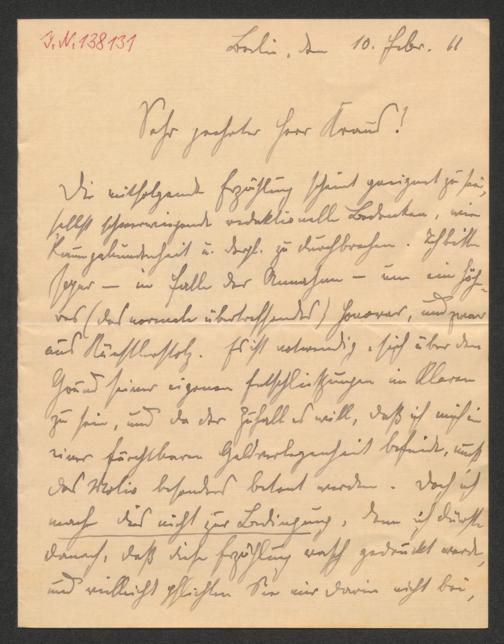 J.N. 138131
Berlin, den 10. Febr. 11
Sehr geehrter Herr Kraus!
Die mitfolgende Erzählung scheint geeignet zu sein,
selbst schwerwiegende redaktionelle Bedenken, wie
Raumgebundenheit u. dergl. zu durchbrechen. Ich bitte
sogar — im Falle der Annahme — um ein höh-
res (das normale übertreffendes) Honorar, und zwar
aus Künstlerstolz. Es ist notwendig, sich über den
Grund seiner eigenen Entschließungen im Klaren
zu sein, und da der Zufall es will, daß ich mich in
einer furchtbaren Geldverlegenheit befinde, muß
das Motiv besonders betont werden. Doch ich
mache dies nicht zur Bedingung, denn ich dürste
danach, daß diese Erzählung rasch gedruckt werde,
und vielleicht pflichten Sie mir darin nicht bei,